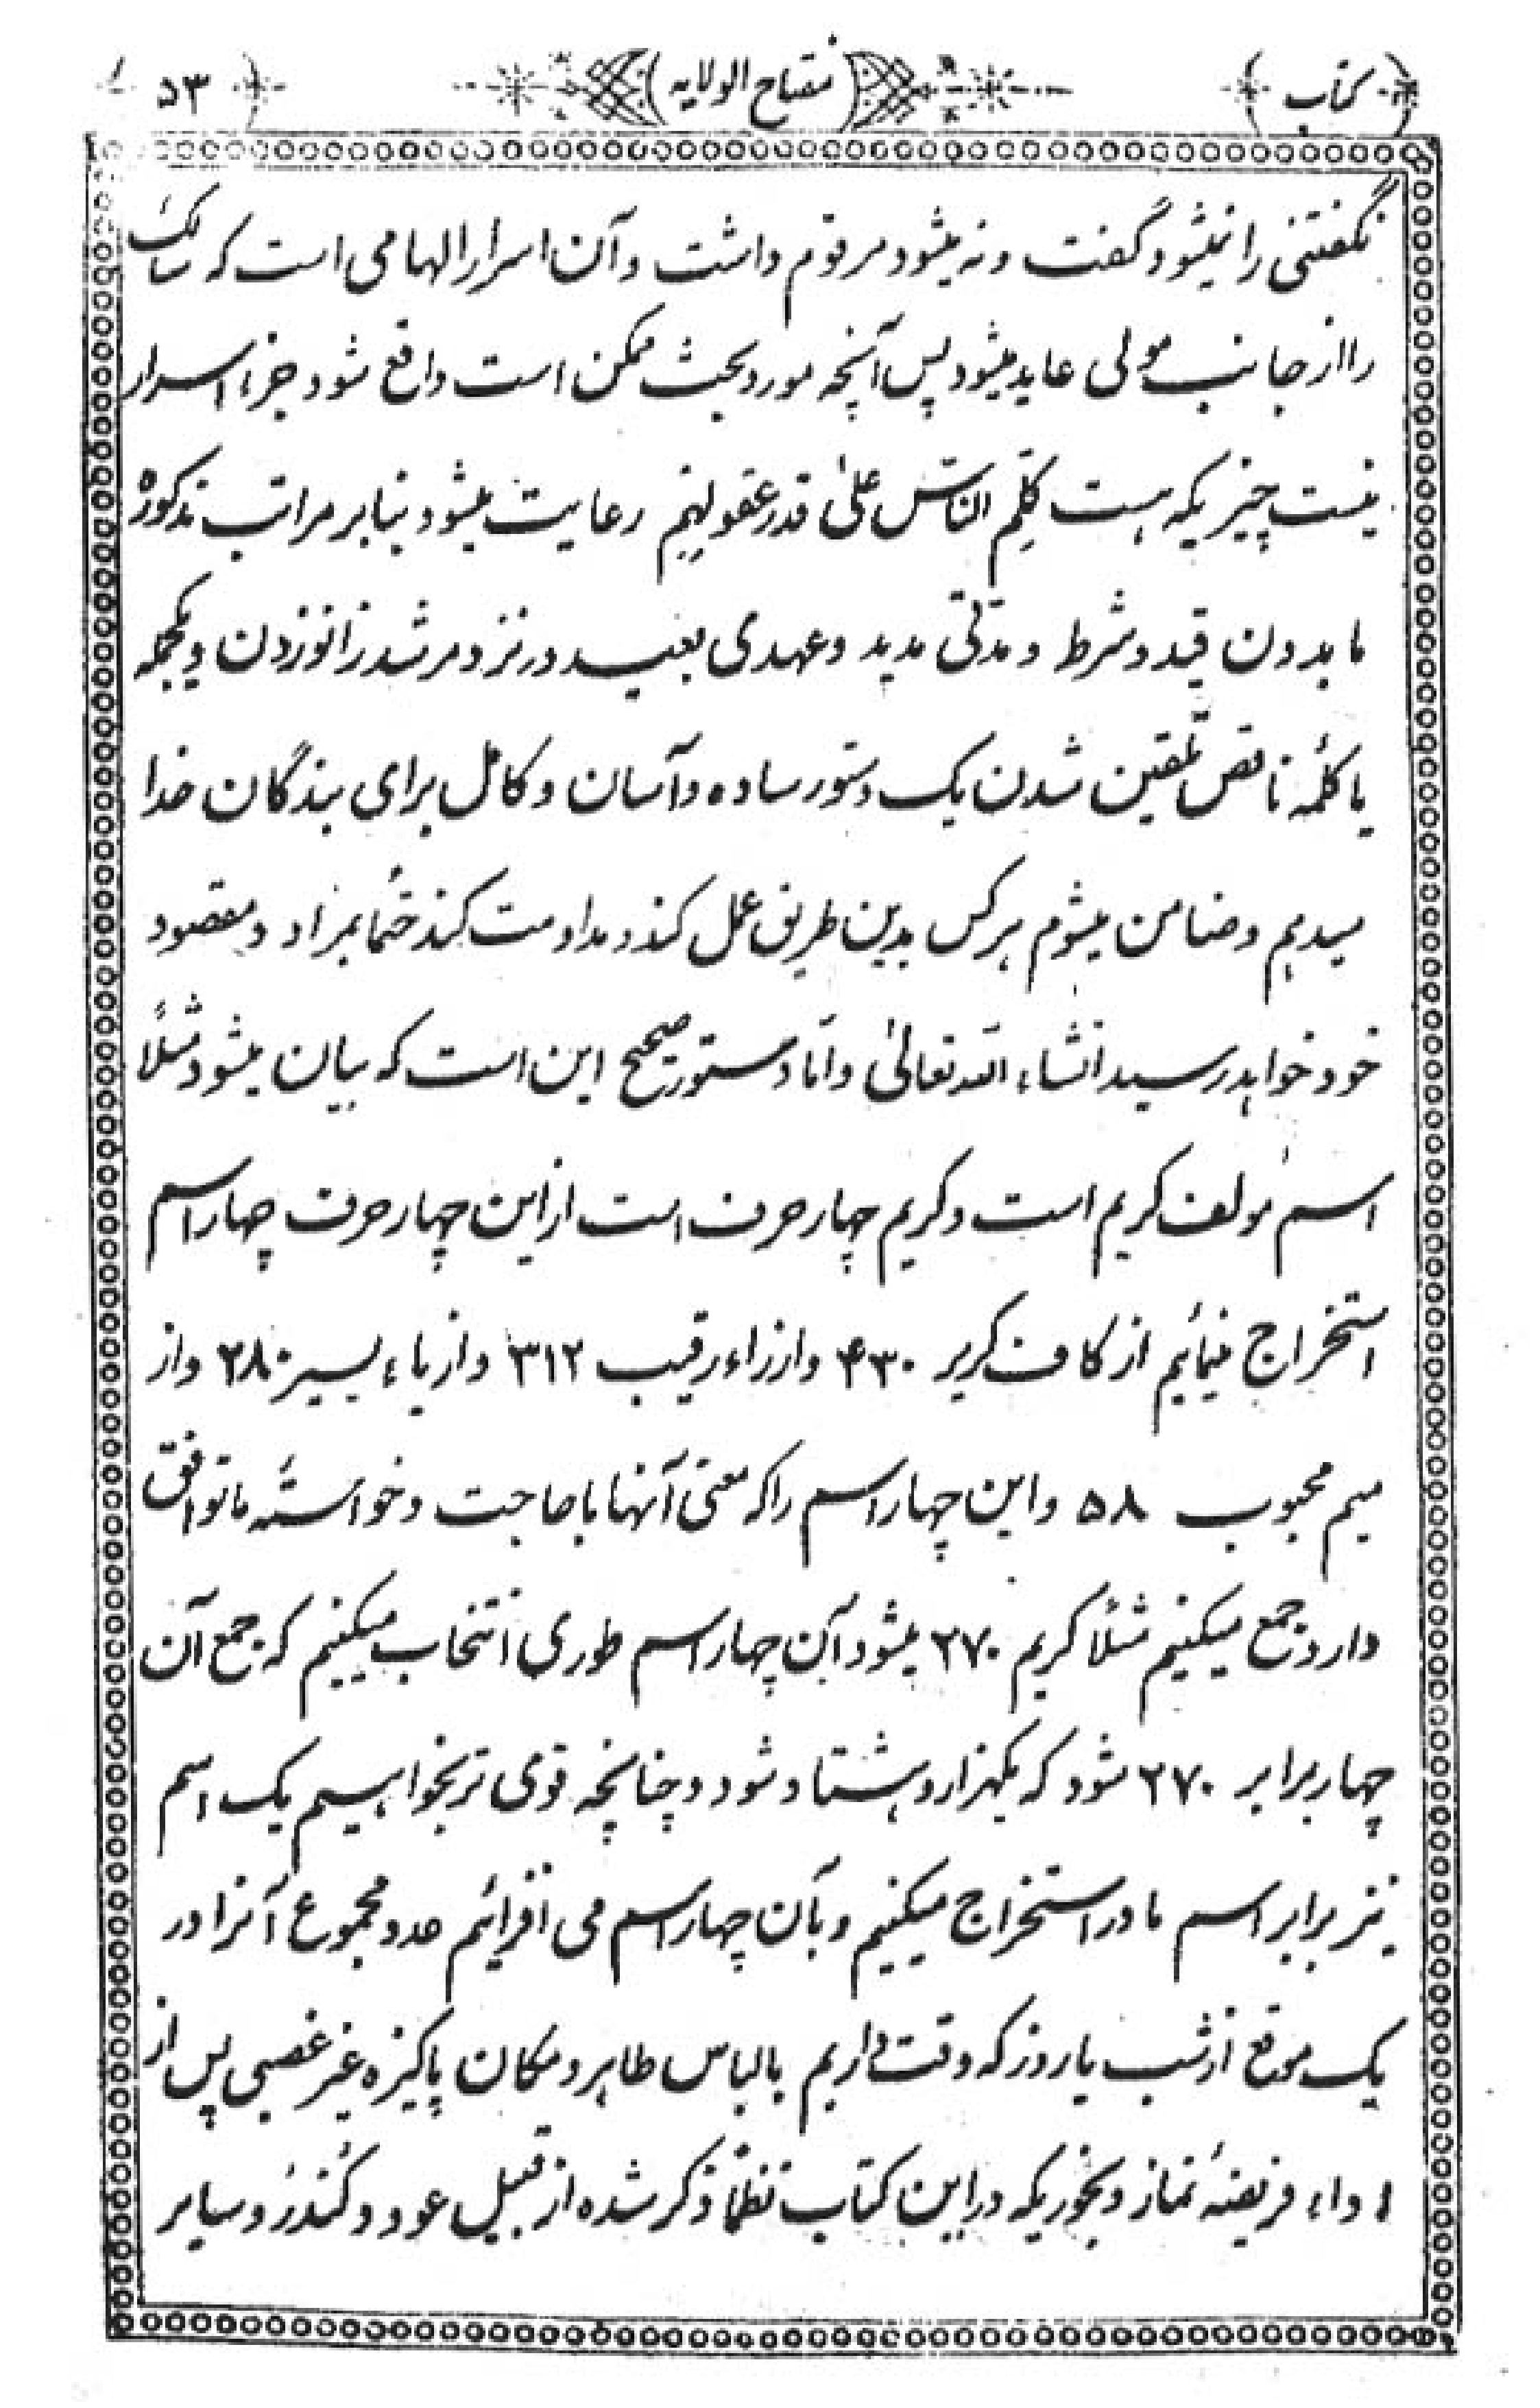 کتاب (مفتاح الولایه) ۵۳
نگفتنی را نمیشود گفت و نه میشود مرقوم داشت و آن اسرار الهامی است که سالک
را از جانب مولی عاید میشود پس آنچه مورد بحث ممکن است واقع شود جزء اسرار
نیست چیزیکه هست کَلِّمِ النّاسَ عَلیٰ قَدرِ عُقولِهِم رعایت میشود بنابر مراتب مذکوره
ما بدون قید و شرط و مدتی مدید و عهدی بعید در نزد مرشد زانو زدن و یکجمله
یا کلمهٔ ناقص تلقین شدن یک دستور ساده و آسان و کامل برای بندگان خدا
میدهیم و ضامن میشوم هرکس بدین طریق عمل کند و مداومت کند حتماً بمراد و مقصود
خود خواهد رسید انشاء الله تعالیٰ و امّا دستور صحیح این است که بیان میشود مثلاً
اسم مولف کریم است و کریم چهار حرف است از این چهار حرف چهار اسم
استخراج مینمائیم از کاف کریر ۴۳۰ و از راء رقیب ۳۱۲ و از یاء یسیر ۲۸۰ و از
میم محبوب ۵۸ و این چهار اسم را که معنی آنها با حاجت و خواستهٔ ما توافق
دارد جمع میکنیم مثلاً کریم ۲۷۰ میشود آن چهار اسم طوری انتخاب میکنیم که جمع آن
چهار برابر ۲۷۰ شود که یکهزار و هشتاد شود و چنانچه قوی تر بخواهیم یک اسم
نیز برابر اسم مادر استخراج میکنیم و بآن چهار اسم می افزائیم عدد مجموع آنرا در
یک موقع از شب یا روز که وقت داریم با لباس طاهر و مکان پاکیزه غیر غصبی پس از
اداء فریضهٔ نماز و بخوریکه در این کتاب نظماً ذکر شده از قبیل عود و کُندُر و سایر